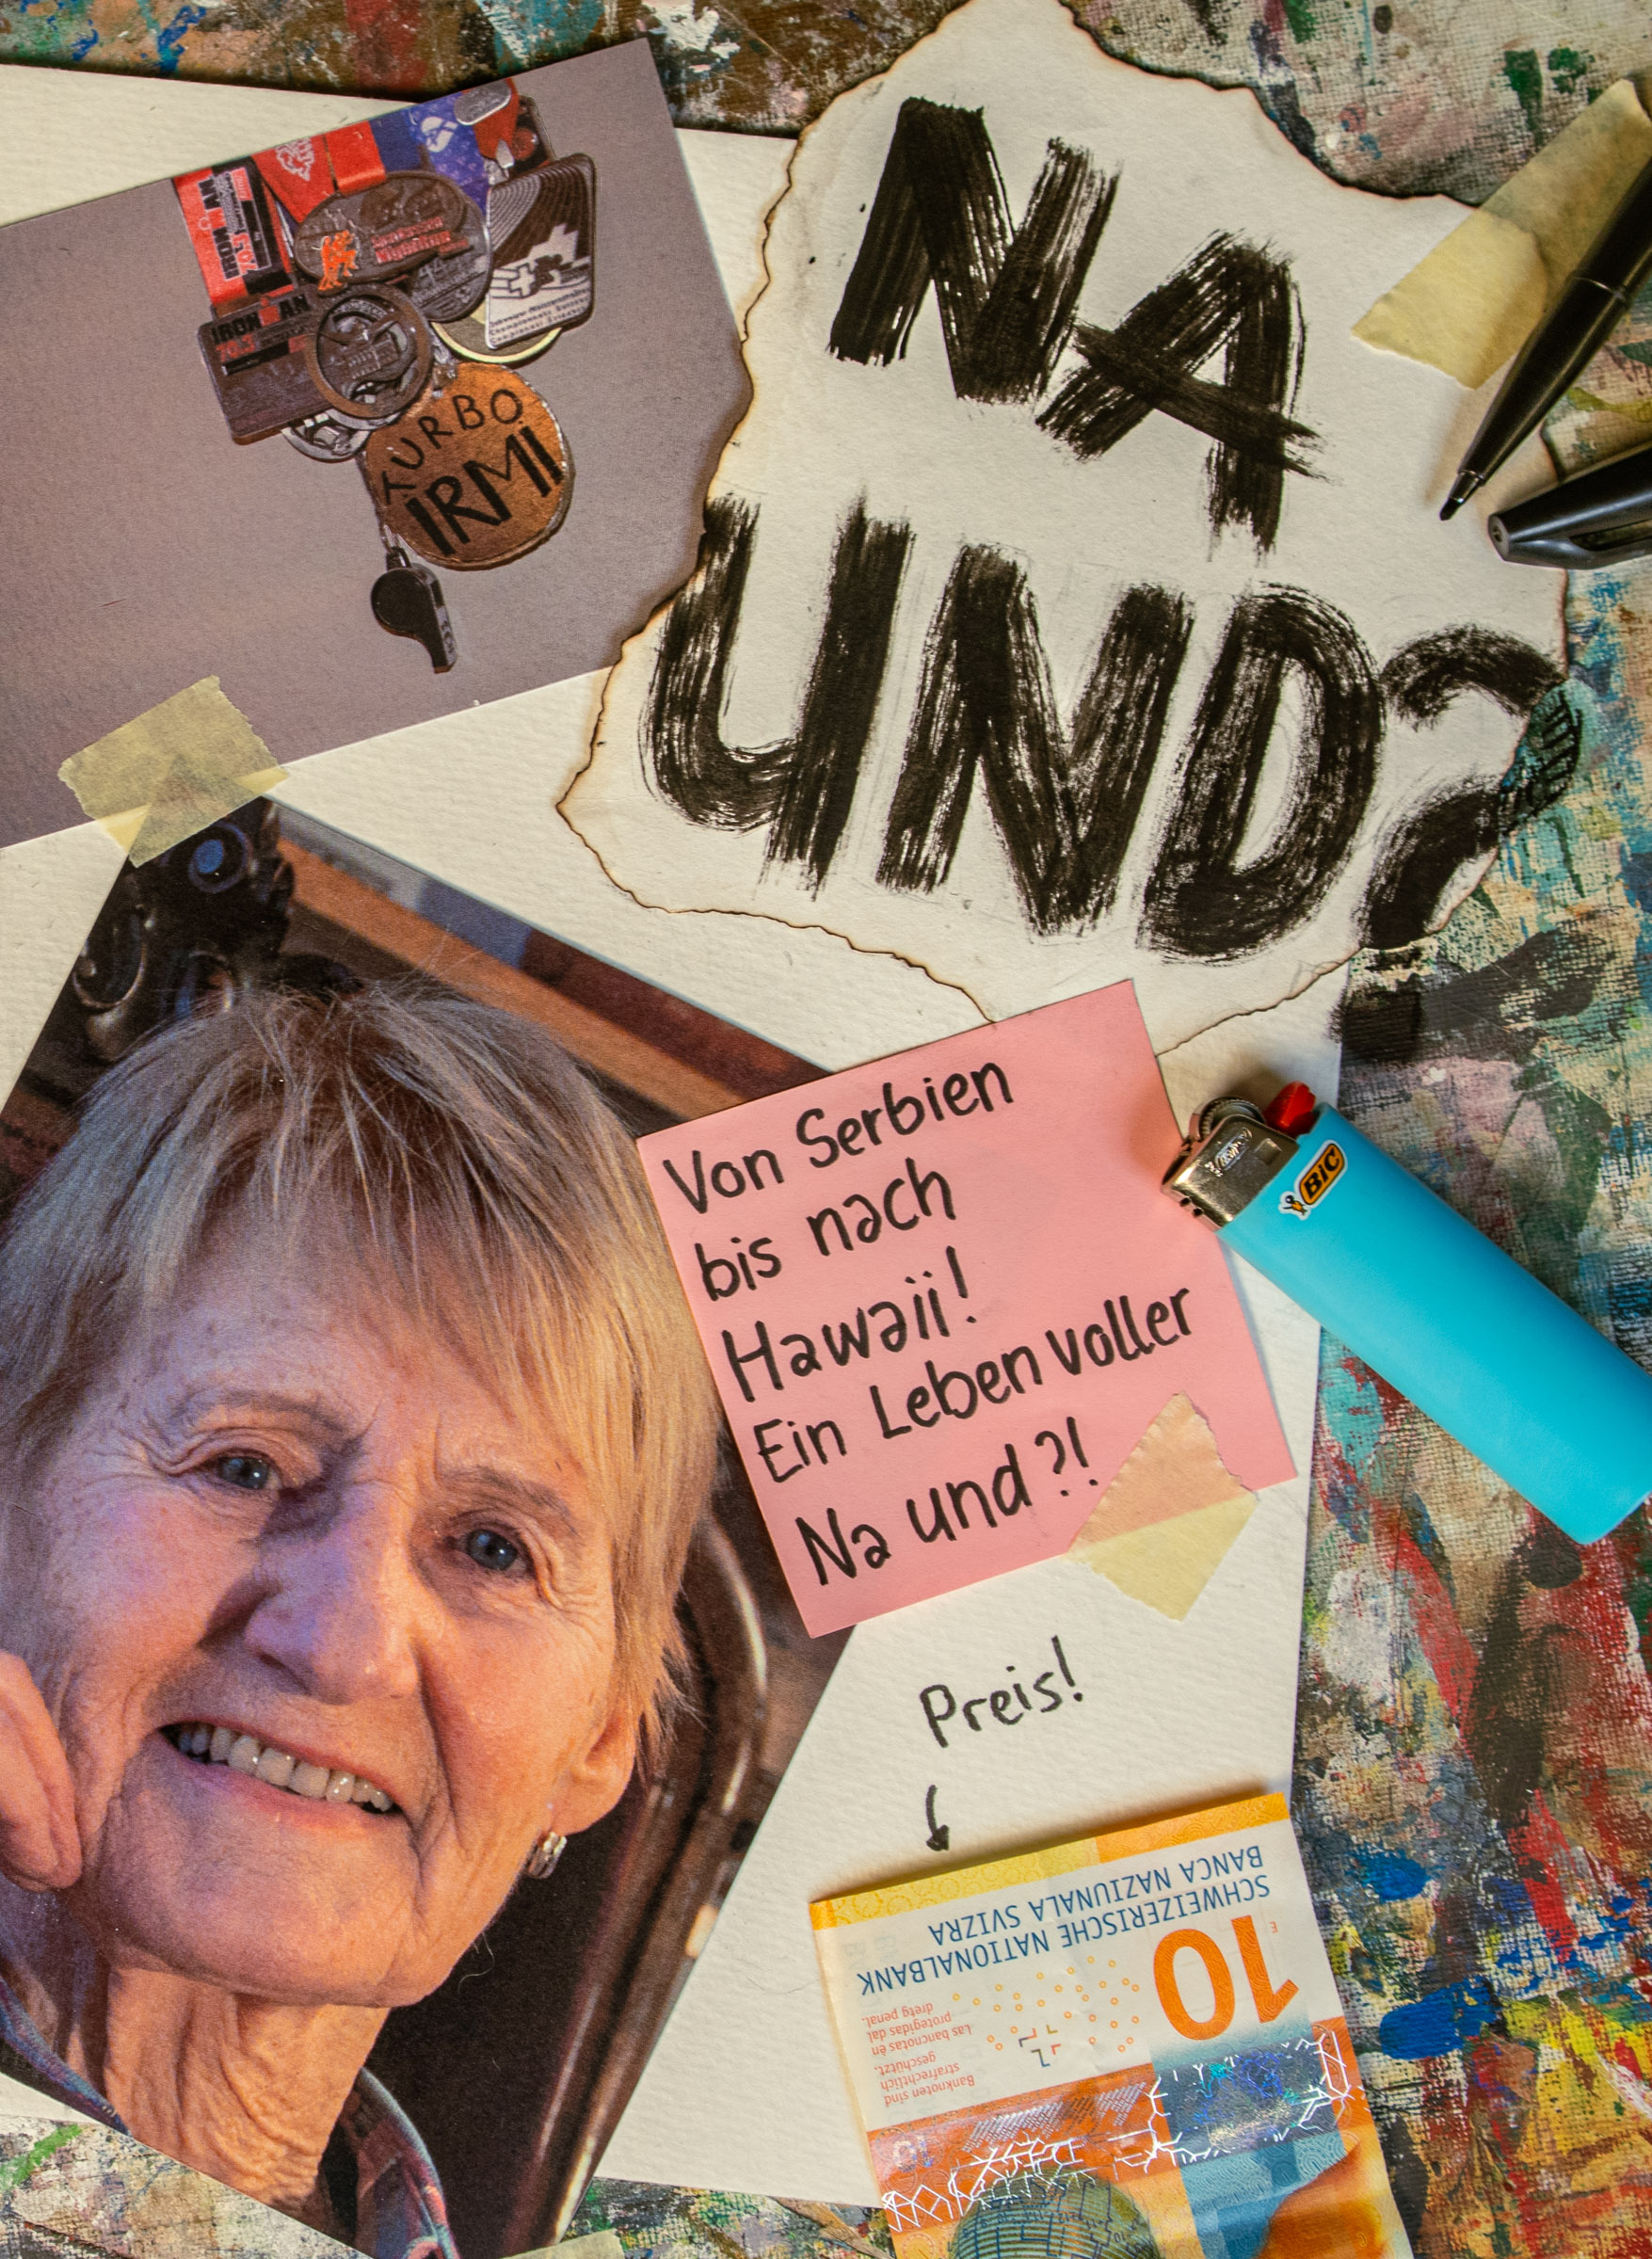 NA
UND?
IRONMAN
70.3
IRONMAN
70.3
TURBO
IRMI
Von Serbien
bis nach
Hawaii!
Ein Leben voller
Na und?!
BIC
Preis!
SCHWEIZERISCHE NATIONALBANK
BANCA NAZIUNALA SVIZRA
10
Banknoten sind
strafrechtlich
geschützt.
Las bancnotas èn
protegidas dal
dretg penal.